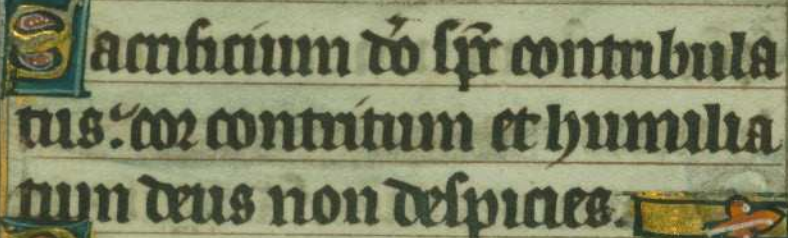 Sacrificium dō sp̄r contribula
tus: cor contritum et humilia
tum deus non despicies.